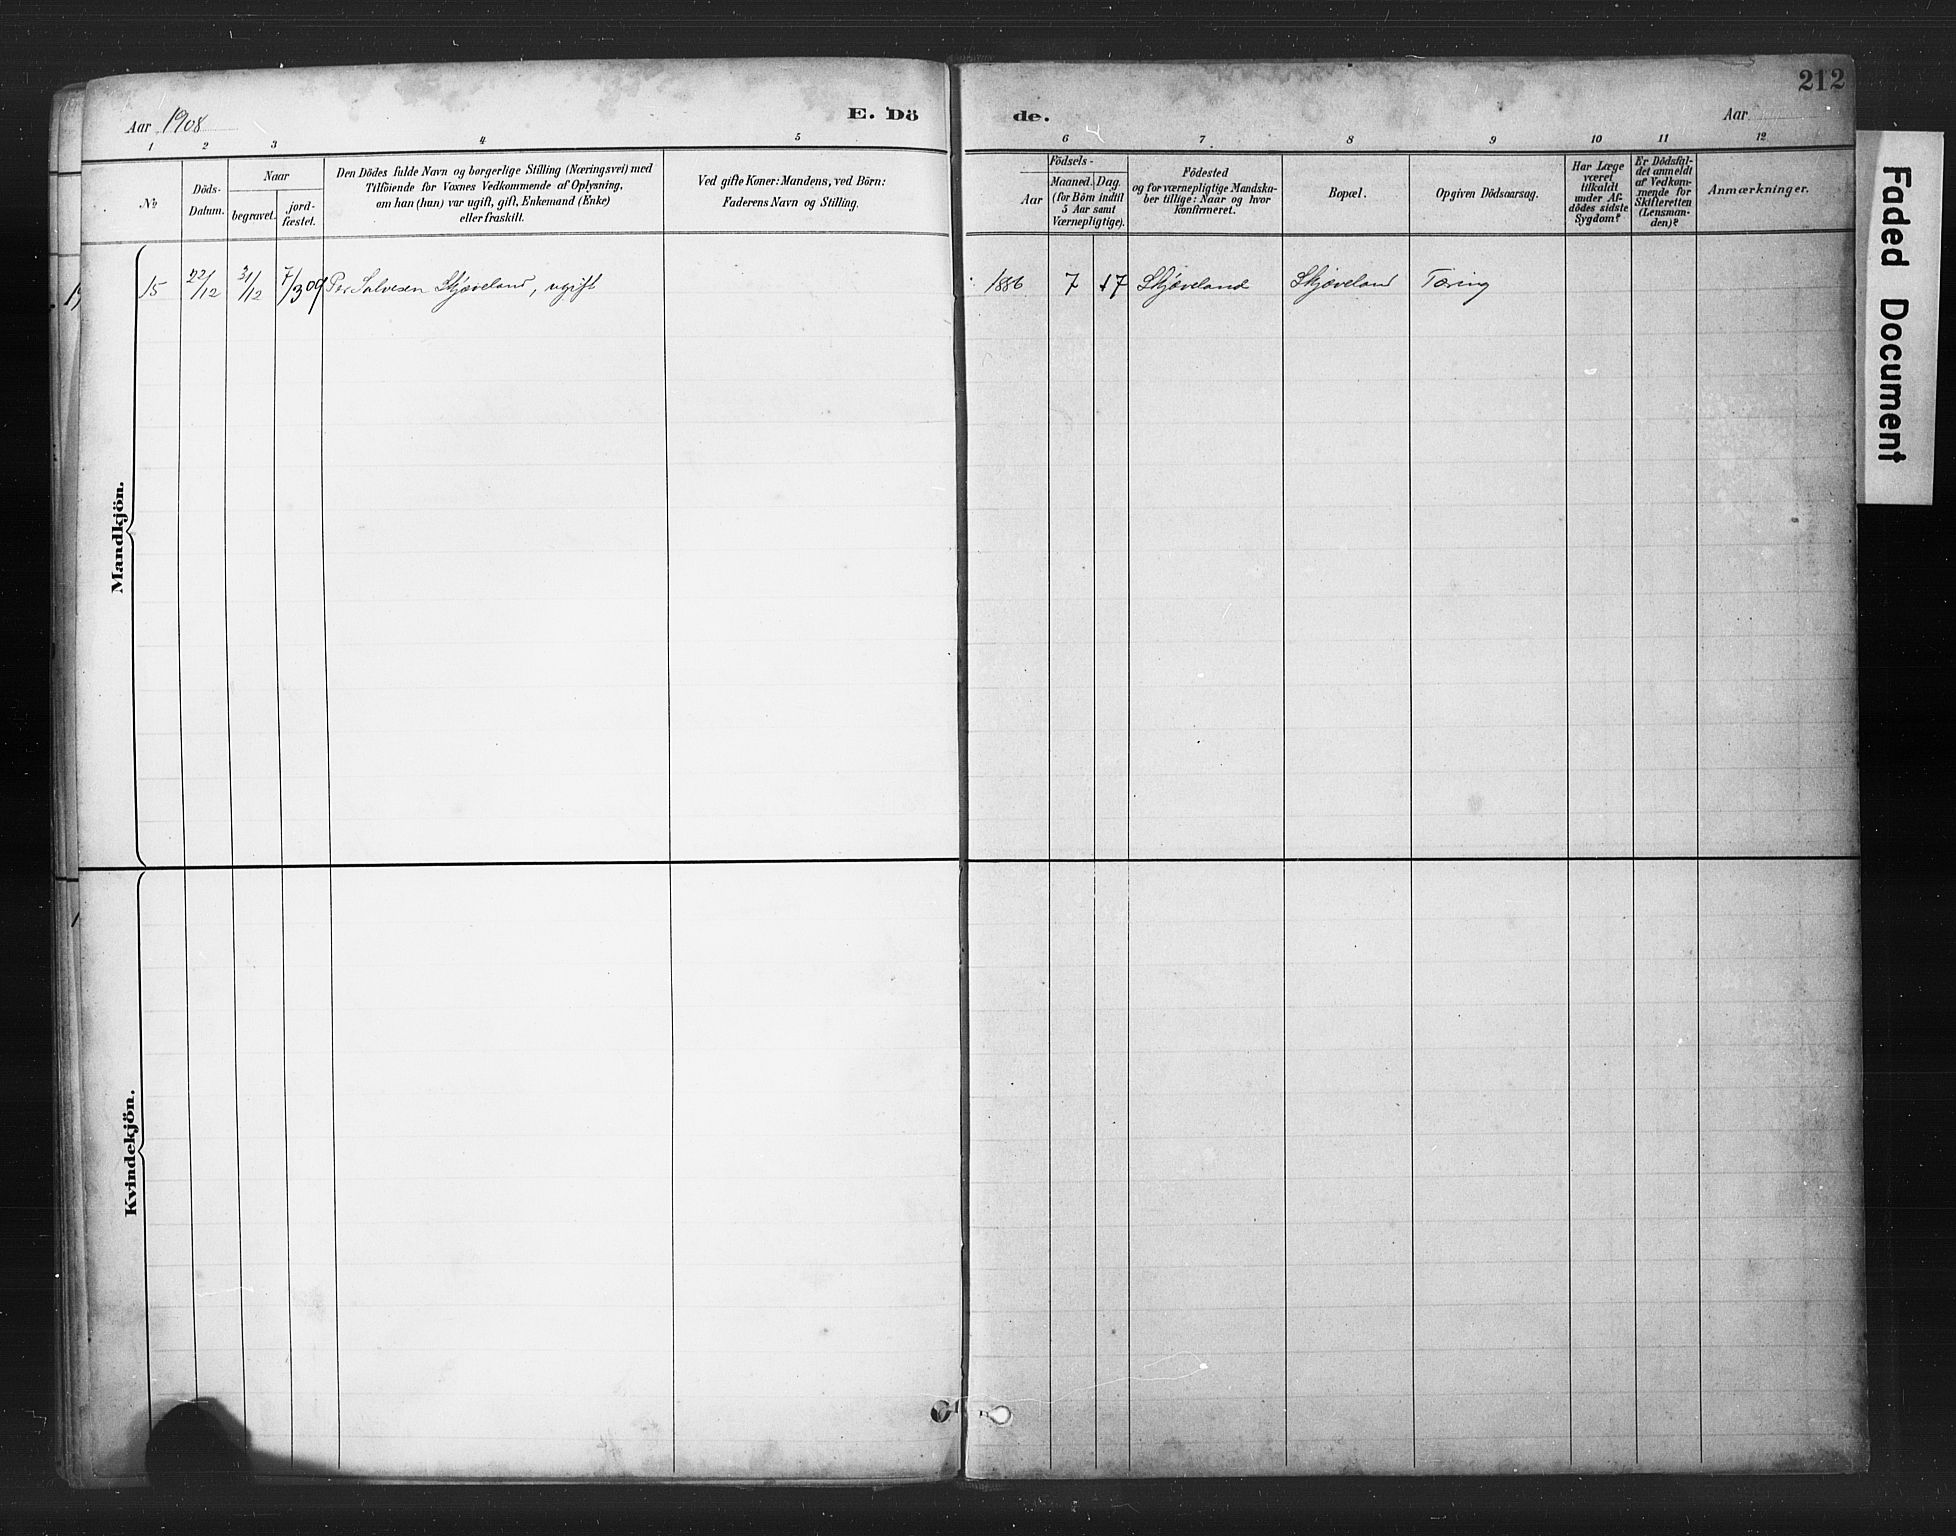 212
Aar 1908
E. Dö
de.
Aar
1 2 3 4 5 6 7 8 9 10 11 12
№
Döds-
Datum.
Naar
begravet.
jord-
fæstet.
Den Dödes fulde Navn og borgerlige Stilling (Næringsvei) med
Tilföiende for Voxnes Vedkommende af Oplysning,
om han (hun) var ugift, gift, Enkemand (Enke)
eller fraskilt.
Ved gifte Koner: Mandens, ved Börn:
Faderens Navn og Stilling.
Födsels-
Aar
Maaned.
Dag.
(for Börn indtil
5 Aar samt
Værnepligtige).
Födested
og for værnepligtige Mandska-
ber tillige: Naar og hvor
konfirmeret.
Bopæl.
Opgiven Dödsaarsag.
Har Læge
været
tilkaldt
under Af-
dödes sidste
Sygdom?
Er Dödsfal-
det anmeldt
af Vedkom-
mende for
Skifteretten
(Lensman-
den)?
Anmærkninger.
15 22/12 31/12 7/3 09 Per Salvesen Skjæveland, ugift 1886 7 17 Skjæveland Skjæveland Tæring
Mandkjön.
Kvindekjön.
Faded Document